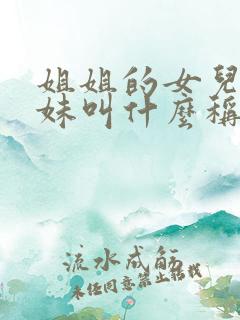 姐姐的女兒
妹叫什麼稱
流水成觞
未经同意禁止转载